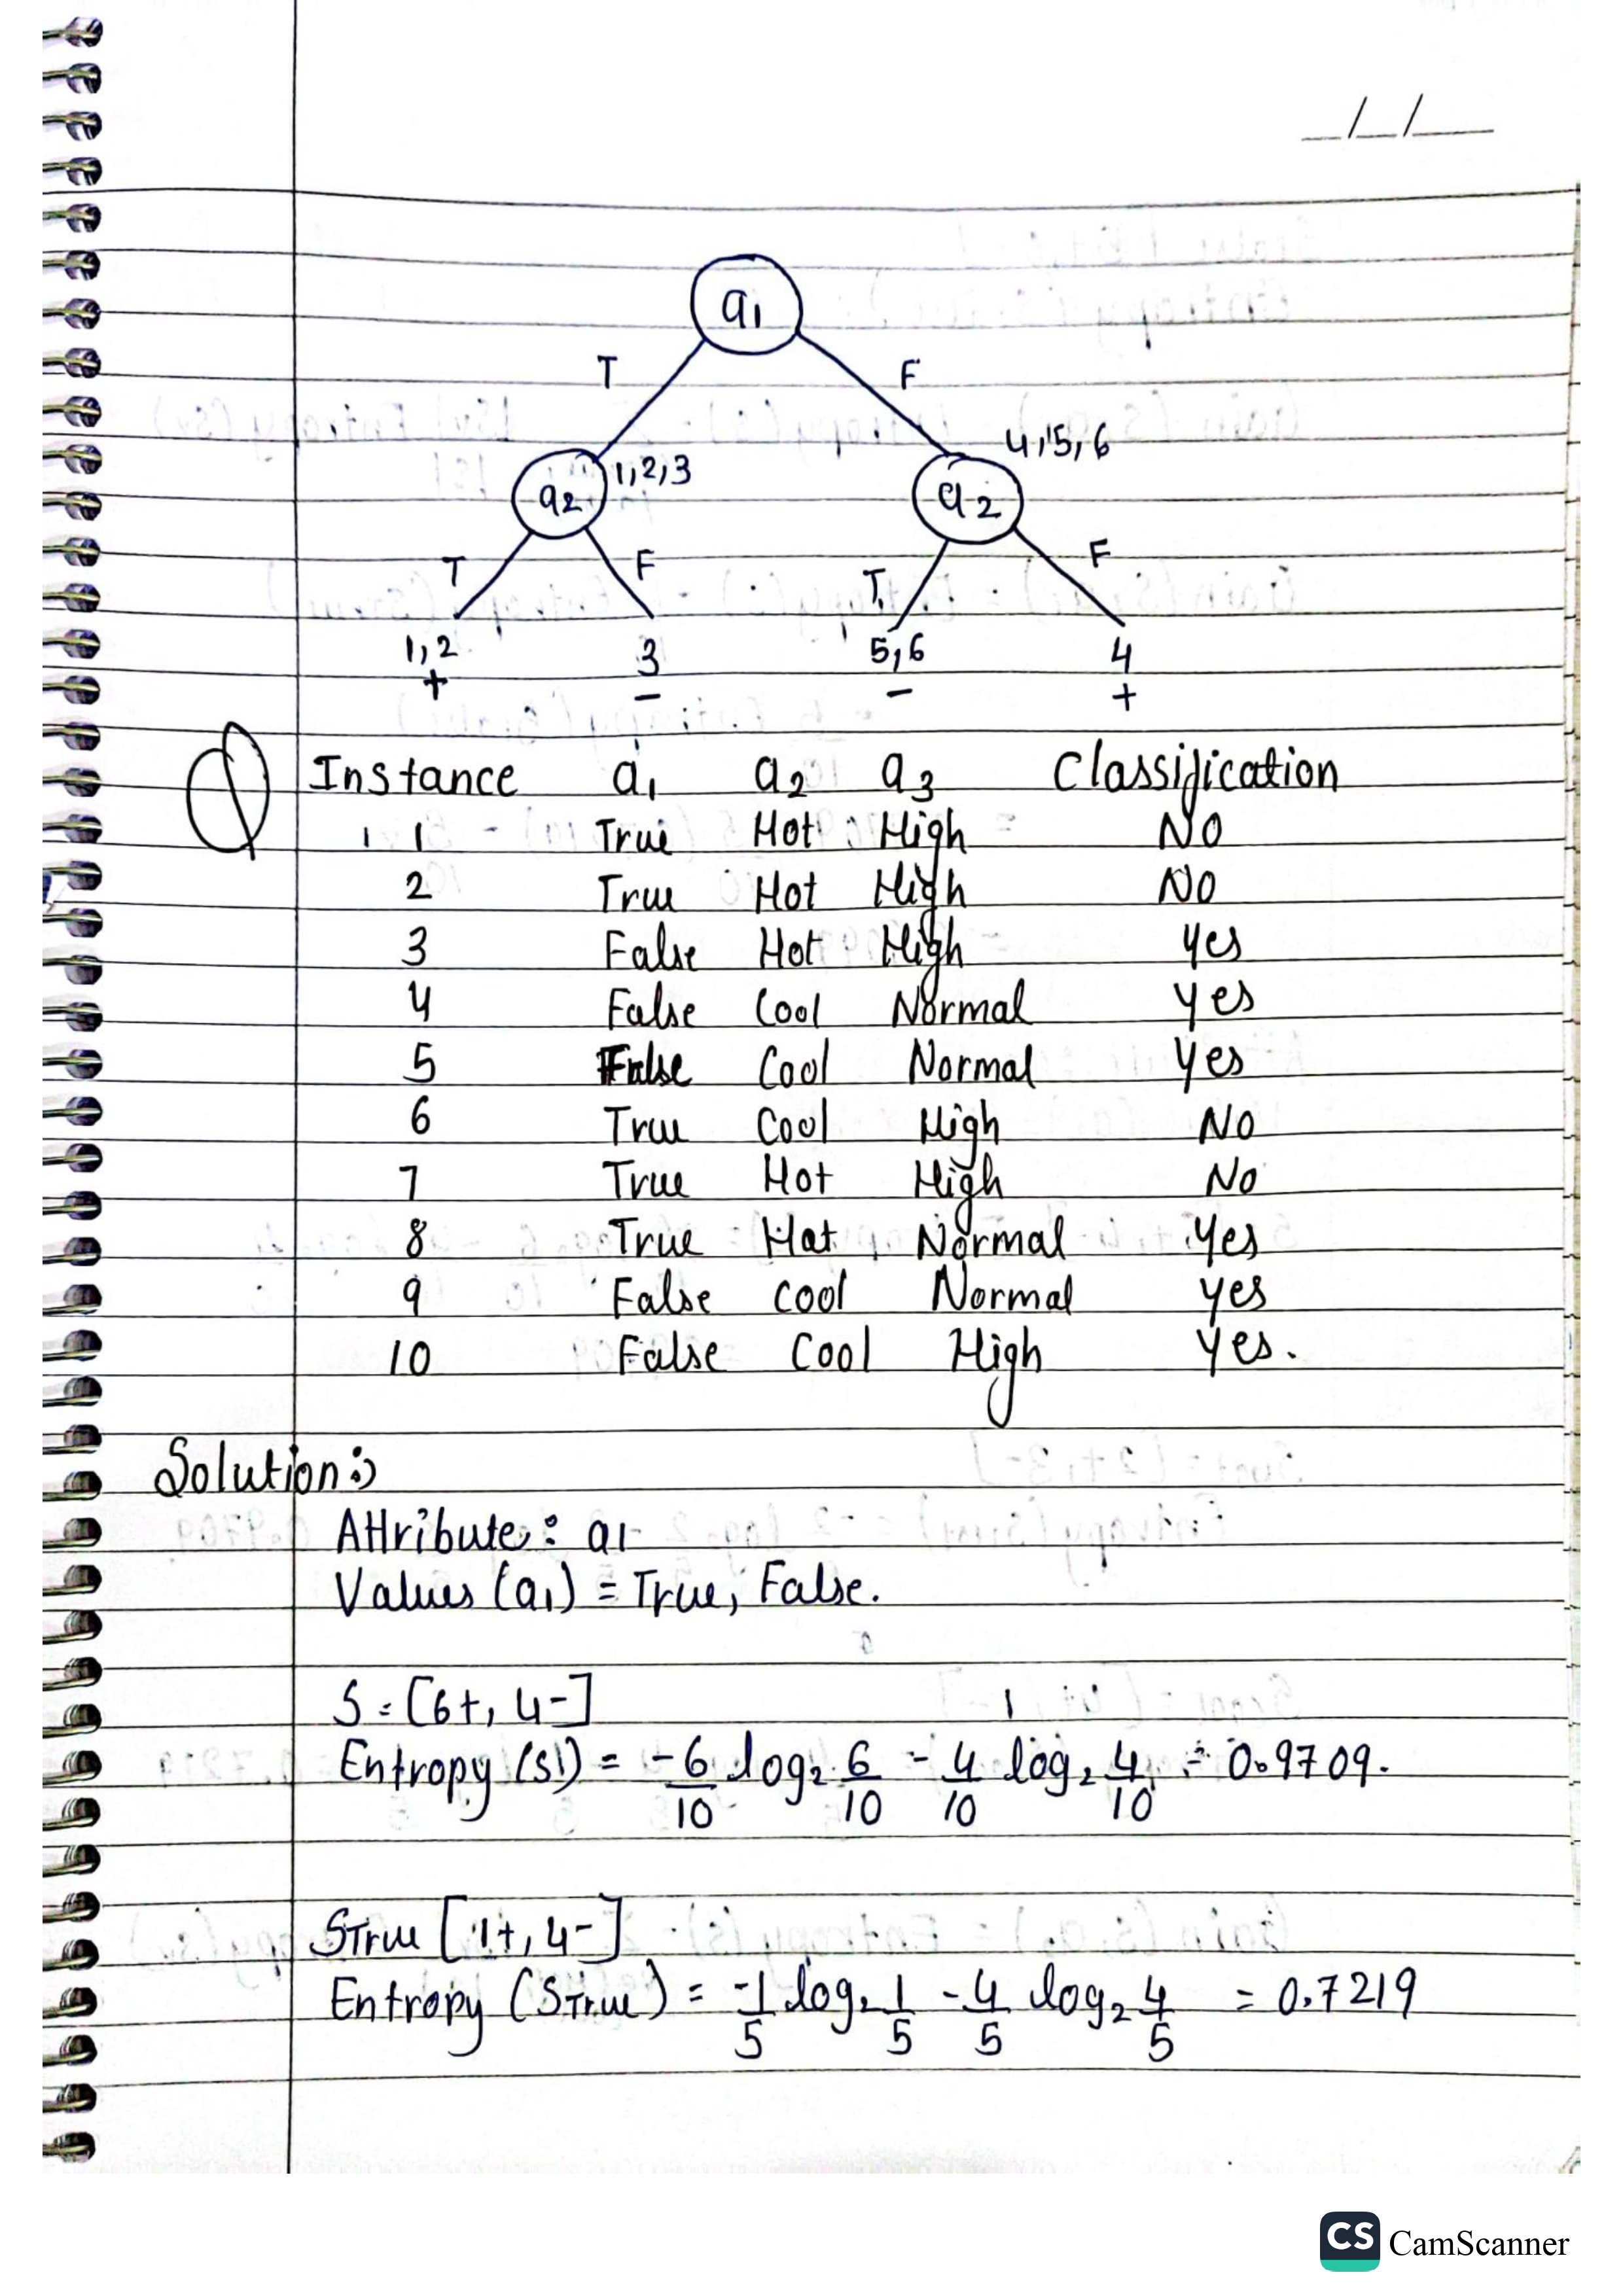 _/_/__
a1
T F
a2 1,2,3 a2 4,5,6
T F T F
1,2 3 5,6 4
+ - - +
Q Instance a1 a2 a3 Classification
1 True Hot High NO
2 True Hot High NO
3 False Hot High yes
4 False Cool Normal yes
5 False Cool Normal yes
6 True Cool High NO
7 True Hot High No
8 True Hot Normal yes
9 False cool Normal yes
10 False Cool High yes.
Solution:
Attribute: a1
Values (a1) = True, False.
S = [6+, 4-]
Entropy (S) = -6/10 log2 6/10 - 4/10 log2 4/10 = 0.9709.
STrue [1+, 4-]
Entropy (STrue) = -1/5 log2 1/5 - 4/5 log2 4/5 = 0.7219
CS CamScanner